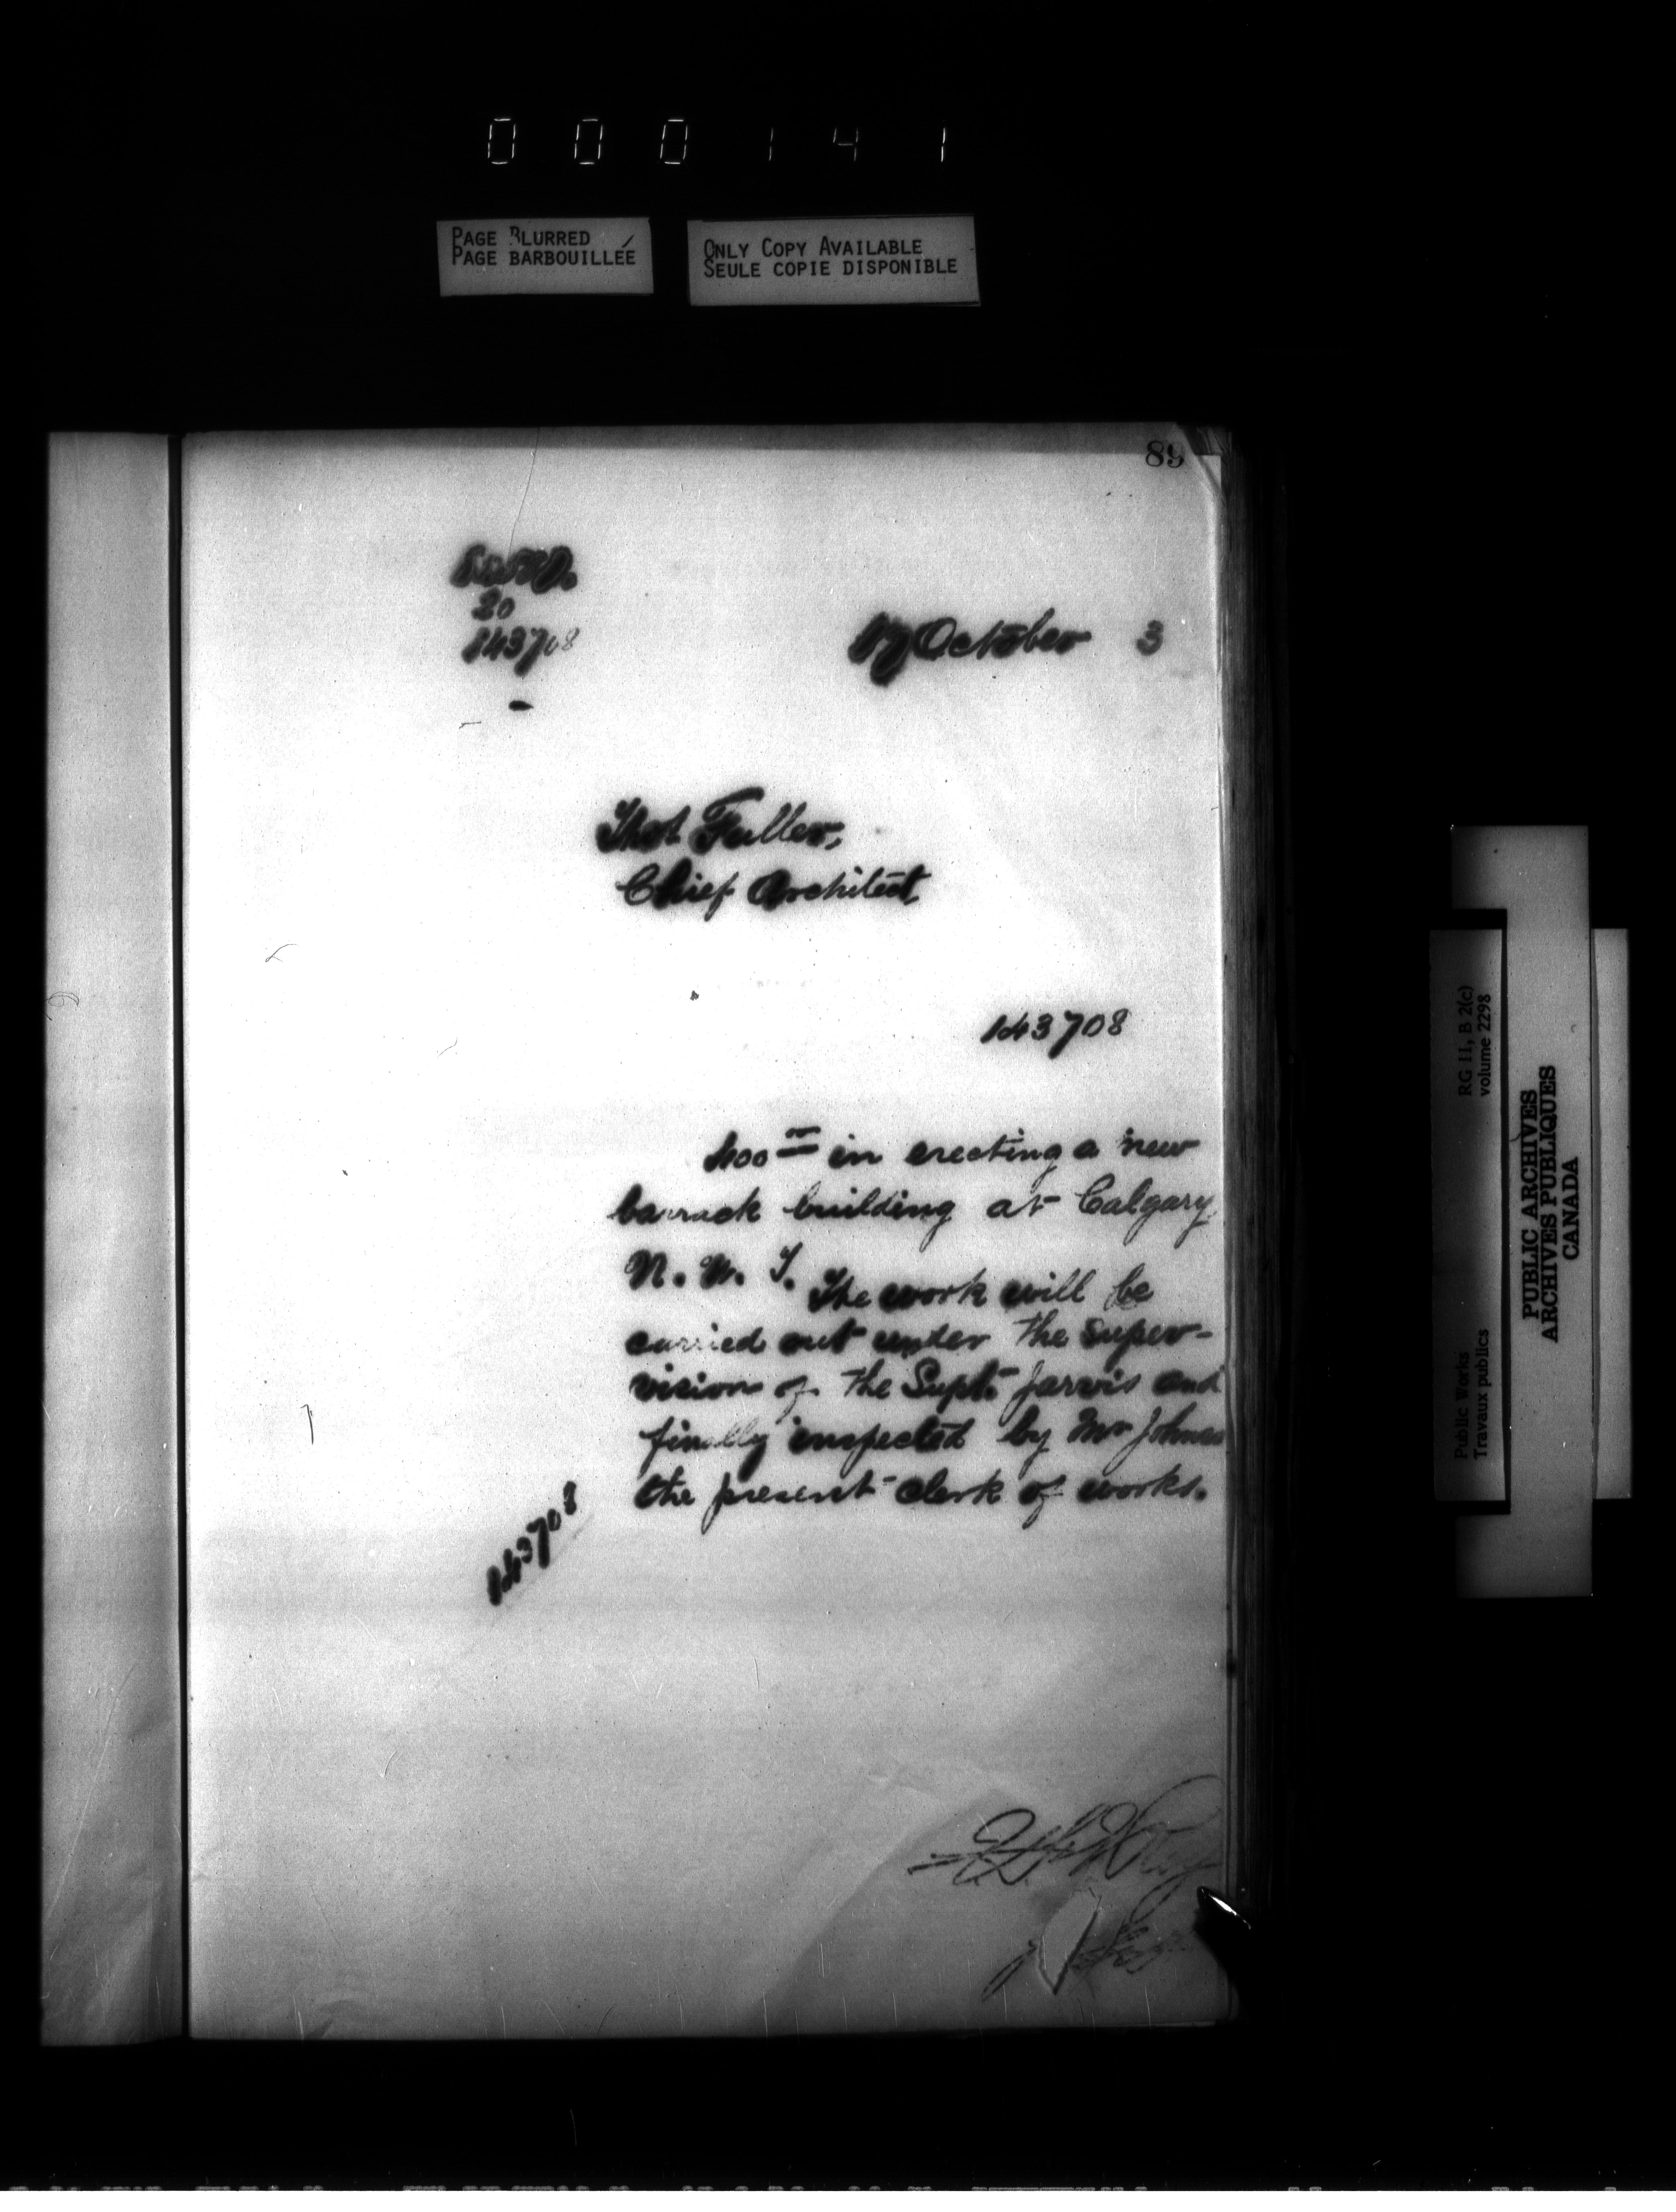 000141
PAGE BLURRED
PAGE BARBOUILLÉE
ONLY COPY AVAILABLE
SEULE COPIE DISPONIBLE
89
20
143708
17 October 3
Thos Fuller,
Chief Architect
143708
400 00 in erecting a new
barrack building at Calgary
N. W. T. The work will be
carried out under the super-
vision of the Supt. Jarvis and
finally inspected by Mr Johnson
the present clerk of works.
143708
RG 11, B 2(c)
volume 2298
Public Works
Travaux publics
PUBLIC ARCHIVES
ARCHIVES PUBLIQUES
CANADA